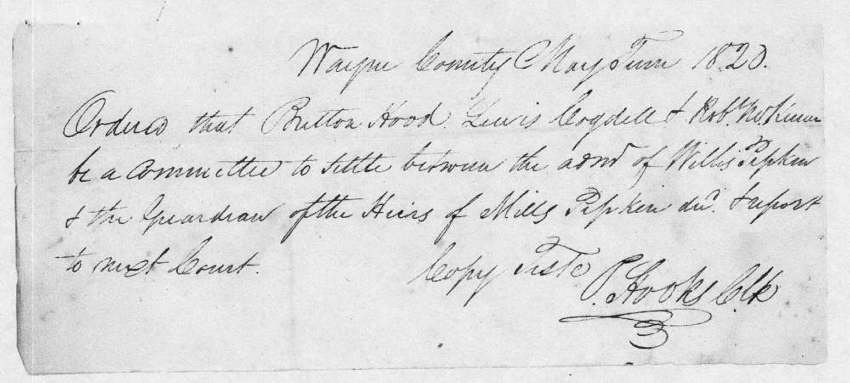 Wayne County May Term 1820.
Ordered that Britton Hood. Lewis Cogdell & Robt.
be a Committee to settle between the admr of Willis Pipkin
& the Guardian of the Heirs of Mills Pipkin decd. & report
to next Court.
Copy Teste
P. Hooks Clk